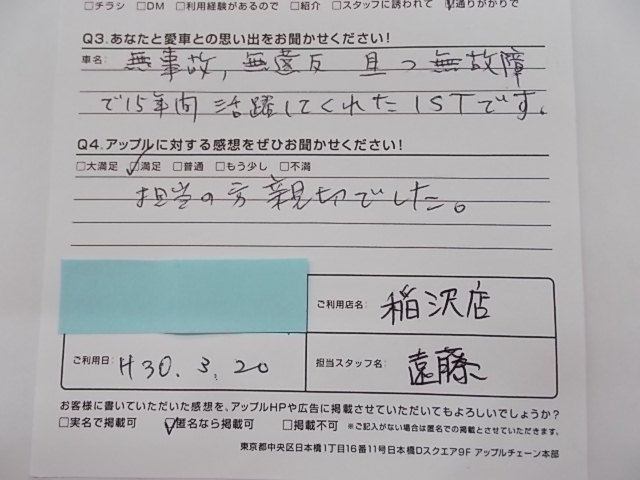 □チラシ □DM □利用経験があるので □紹介 □スタッフに誘われて ☑通りがかりで
Q3.あなたと愛車との思い出をお聞かせください!
車名: 無事故,無違反 且つ無故障
で15年間活躍してくれたISTです。
Q4.アップルに対する感想をぜひお聞かせください!
□大満足 ☑満足 □普通 □もう少し □不満
担当の方親切でした。
ご利用店名: 稲沢店
ご利用日: H30.3.20 担当スタッフ名: 遠藤
お客様に書いていただいた感想を、アップルHPや広告に掲載させていただいてもよろしいでしょうか?
□実名で掲載可 ☑匿名なら掲載可 □掲載不可 ※ご記入がない場合は匿名での掲載とさせていただきます。
東京都中央区日本橋1丁目16番11号日本橋Dスクエア9F アップルチェーン本部